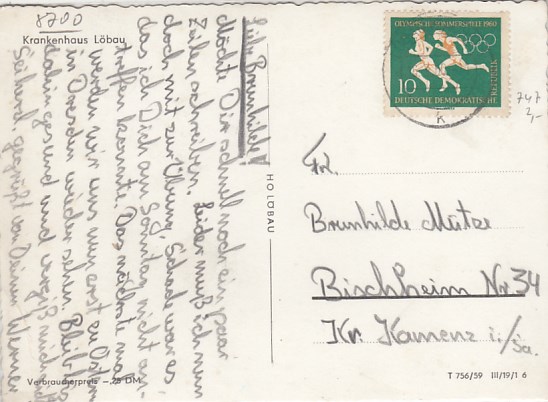 8700
Krankenhaus Löbau
Liebe Brunhilde!
Möchte Dir schnell noch ein paar
Zeilen schreiben. Leider muß ich nun
doch mit zur Übung, Schade war es
das ich Dich am Sonntag nicht an-
treffen konnte. Das nächste mal
werden wir uns nun erst zu Ostern
in Dresden wieder sehen. Bleib bis
dahin gesund und vergiß mich nicht
Sei herzl. gegrüßt von Deinem Werner
Verbraucherpreis –,25 DM
HO LÖBAU
OLYMPISCHE SOMMERSPIELE 1960
10
DEUTSCHE DEMOKRATISCHE
REPUBLIK
K
747
2,-
Fr.
Brunhilde Mütze
Bischheim Nr 34
Kr. Kamenz i/Sa.
T 756/59 III/19/1 6